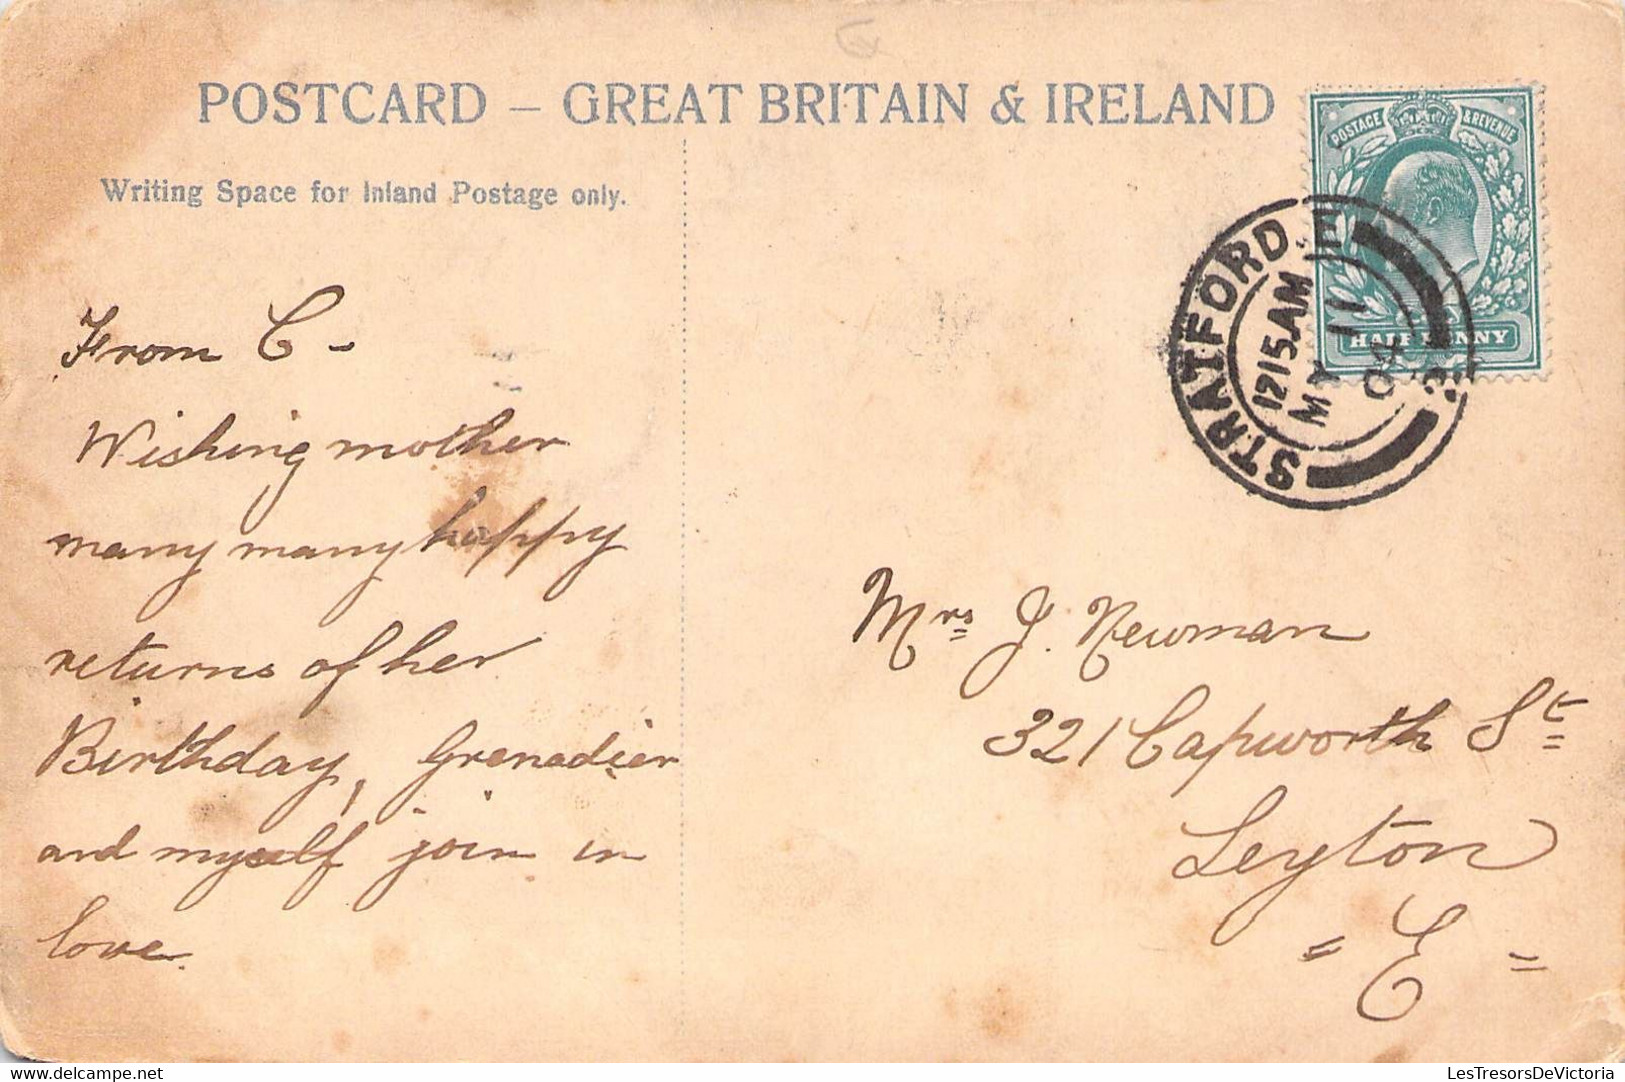 POSTCARD – GREAT BRITAIN & IRELAND
Writing Space for Inland Postage only.
From C -
Wishing mother
many many happy
returns of her
Birthday, Grenadier
and myself join in
love.
POSTAGE & REVENUE
HALFPENNY
STRATFORD. E
12 15 AM
MY 11
04
Mrs J. Newman
321 Capworth St
Leyton
= E =
delcampe.net
LesTresorsDeVictoria